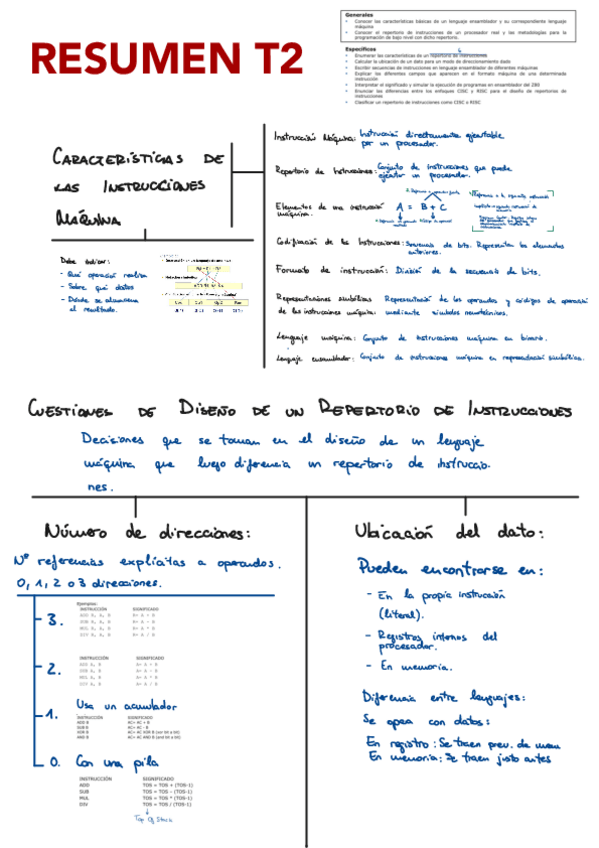 RESUMEN T2
Generales
• Conocer las características básicas de un lenguaje ensamblador y su correspondiente lenguaje
máquina
• Conocer el repertorio de instrucciones de un procesador real y las metodologías para la
programación de bajo nivel con dicho repertorio.
Específicos
• Enumerar las características de un repertorio de instrucciones
• Calcular la ubicación de un dato para un modo de direccionamiento dado
• Escribir secuencias de instrucciones en lenguaje ensamblador de diferentes máquinas
• Explicar los diferentes campos que aparecen en el formato máquina de una determinada
instrucción
• Interpretar el significado y simular la ejecución de programas en ensamblador del Z80
• Enunciar las diferencias entre los enfoques CISC y RISC para el diseño de repertorios de
instrucciones
• Clasificar un repertorio de instrucciones como CISC o RISC
CARACTERÍSTICAS DE
LAS INSTRUCCIONES
MÁQUINA
Debe indicar:
- Qué operación realiza
- Sobre qué datos
- Dónde se almacena
el resultado.
Instrucción Máquina: Instrucción directamente ejecutable
por un procesador.
Repertorio de Instrucciones: Conjunto de instrucciones que puede
ejecutar un procesador.
Elementos de una instrucción
máquina.
A = B + C
Codificación de las Instrucciones: Secuencia de bits. Representan los elementos
anteriores.
Formato de instrucción: División de la secuencia de bits.
Representaciones simbólicas
de las instrucciones máquina:
Representación de los operandos y códigos de operación
mediante símbolos nemotécnicos.
Lenguaje máquina: Conjunto de instrucciones máquina en binario.
Lenguaje ensamblador: Conjunto de instrucciones máquina en representación simbólica.
CUESTIONES DE DISEÑO DE UN REPERTORIO DE INSTRUCCIONES
Decisiones que se toman en el diseño de un lenguaje
máquina que luego diferencia un repertorio de instruccio-
nes.
Número de direcciones:
Nº referencias explícitas a operandos.
0, 1, 2 o 3 direcciones.
3.
Ejemplos:
INSTRUCCIÓN SIGNIFICADO
ADD R, A, B R= A + B
SUB R, A, B R= A - B
MUL R, A, B R= A * B
DIV R, A, B R= A / B
2.
INSTRUCCIÓN SIGNIFICADO
ADD A, B A= A + B
SUB A, B A= A - B
MUL A, B A= A * B
DIV A, B A= A / B
1. Usa un acumulador
INSTRUCCIÓN SIGNIFICADO
ADD B AC= AC + B
SUB B AC= AC - B
XOR B AC= AC XOR B (xor bit a bit)
AND B AC= AC AND B (and bit a bit)
0. Con una pila
INSTRUCCIÓN SIGNIFICADO
ADD TOS = TOS + (TOS-1)
SUB TOS = TOS - (TOS-1)
MUL TOS = TOS * (TOS-1)
DIV TOS = TOS / (TOS-1)
Top Of Stack
Ubicación del dato:
Pueden encontrarse en:
- En la propia instrucción
(literal).
- Registros internos del
procesador.
- En memoria.
Diferencia entre lenguajes:
Se opera con datos:
En registro: Se traen prev. de mem
En memoria: Se traen justo antes